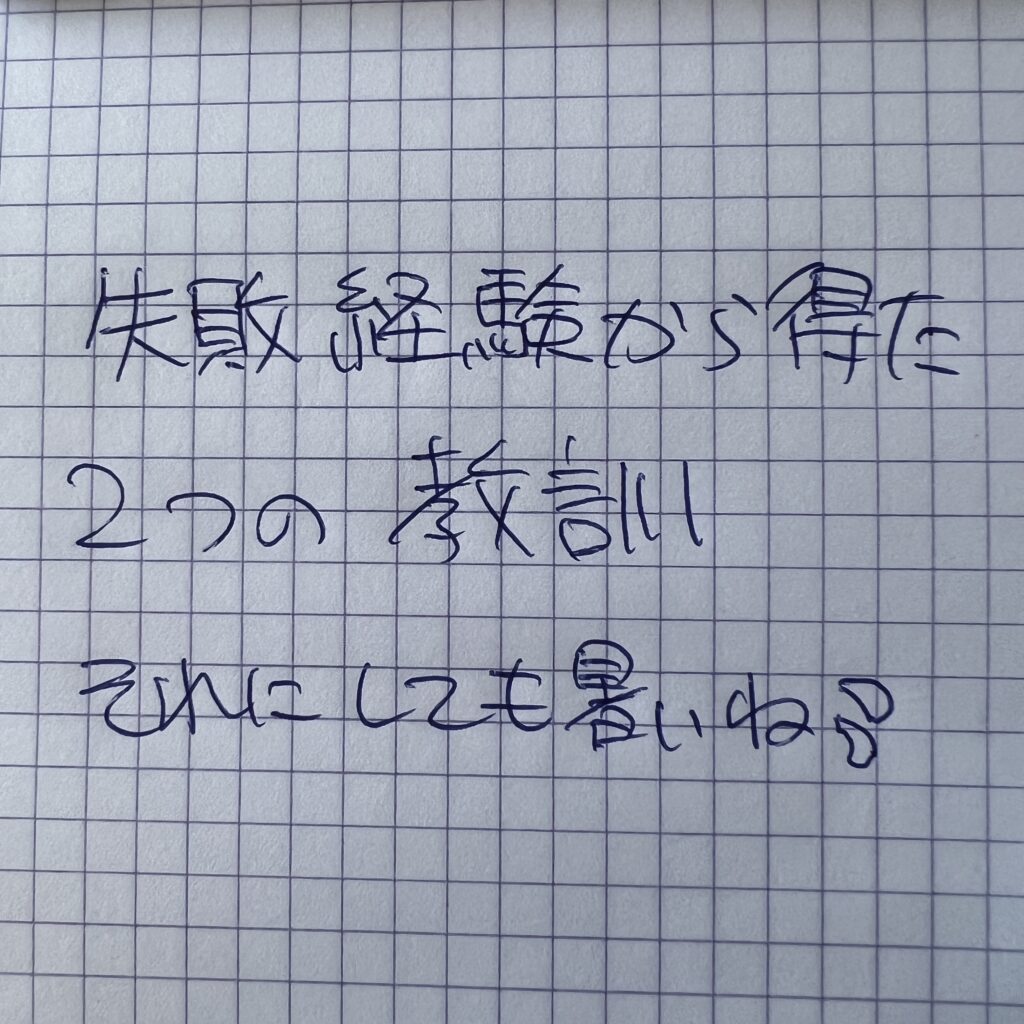 失敗経験から得た
2つの教訓
それにしても暑いね💦